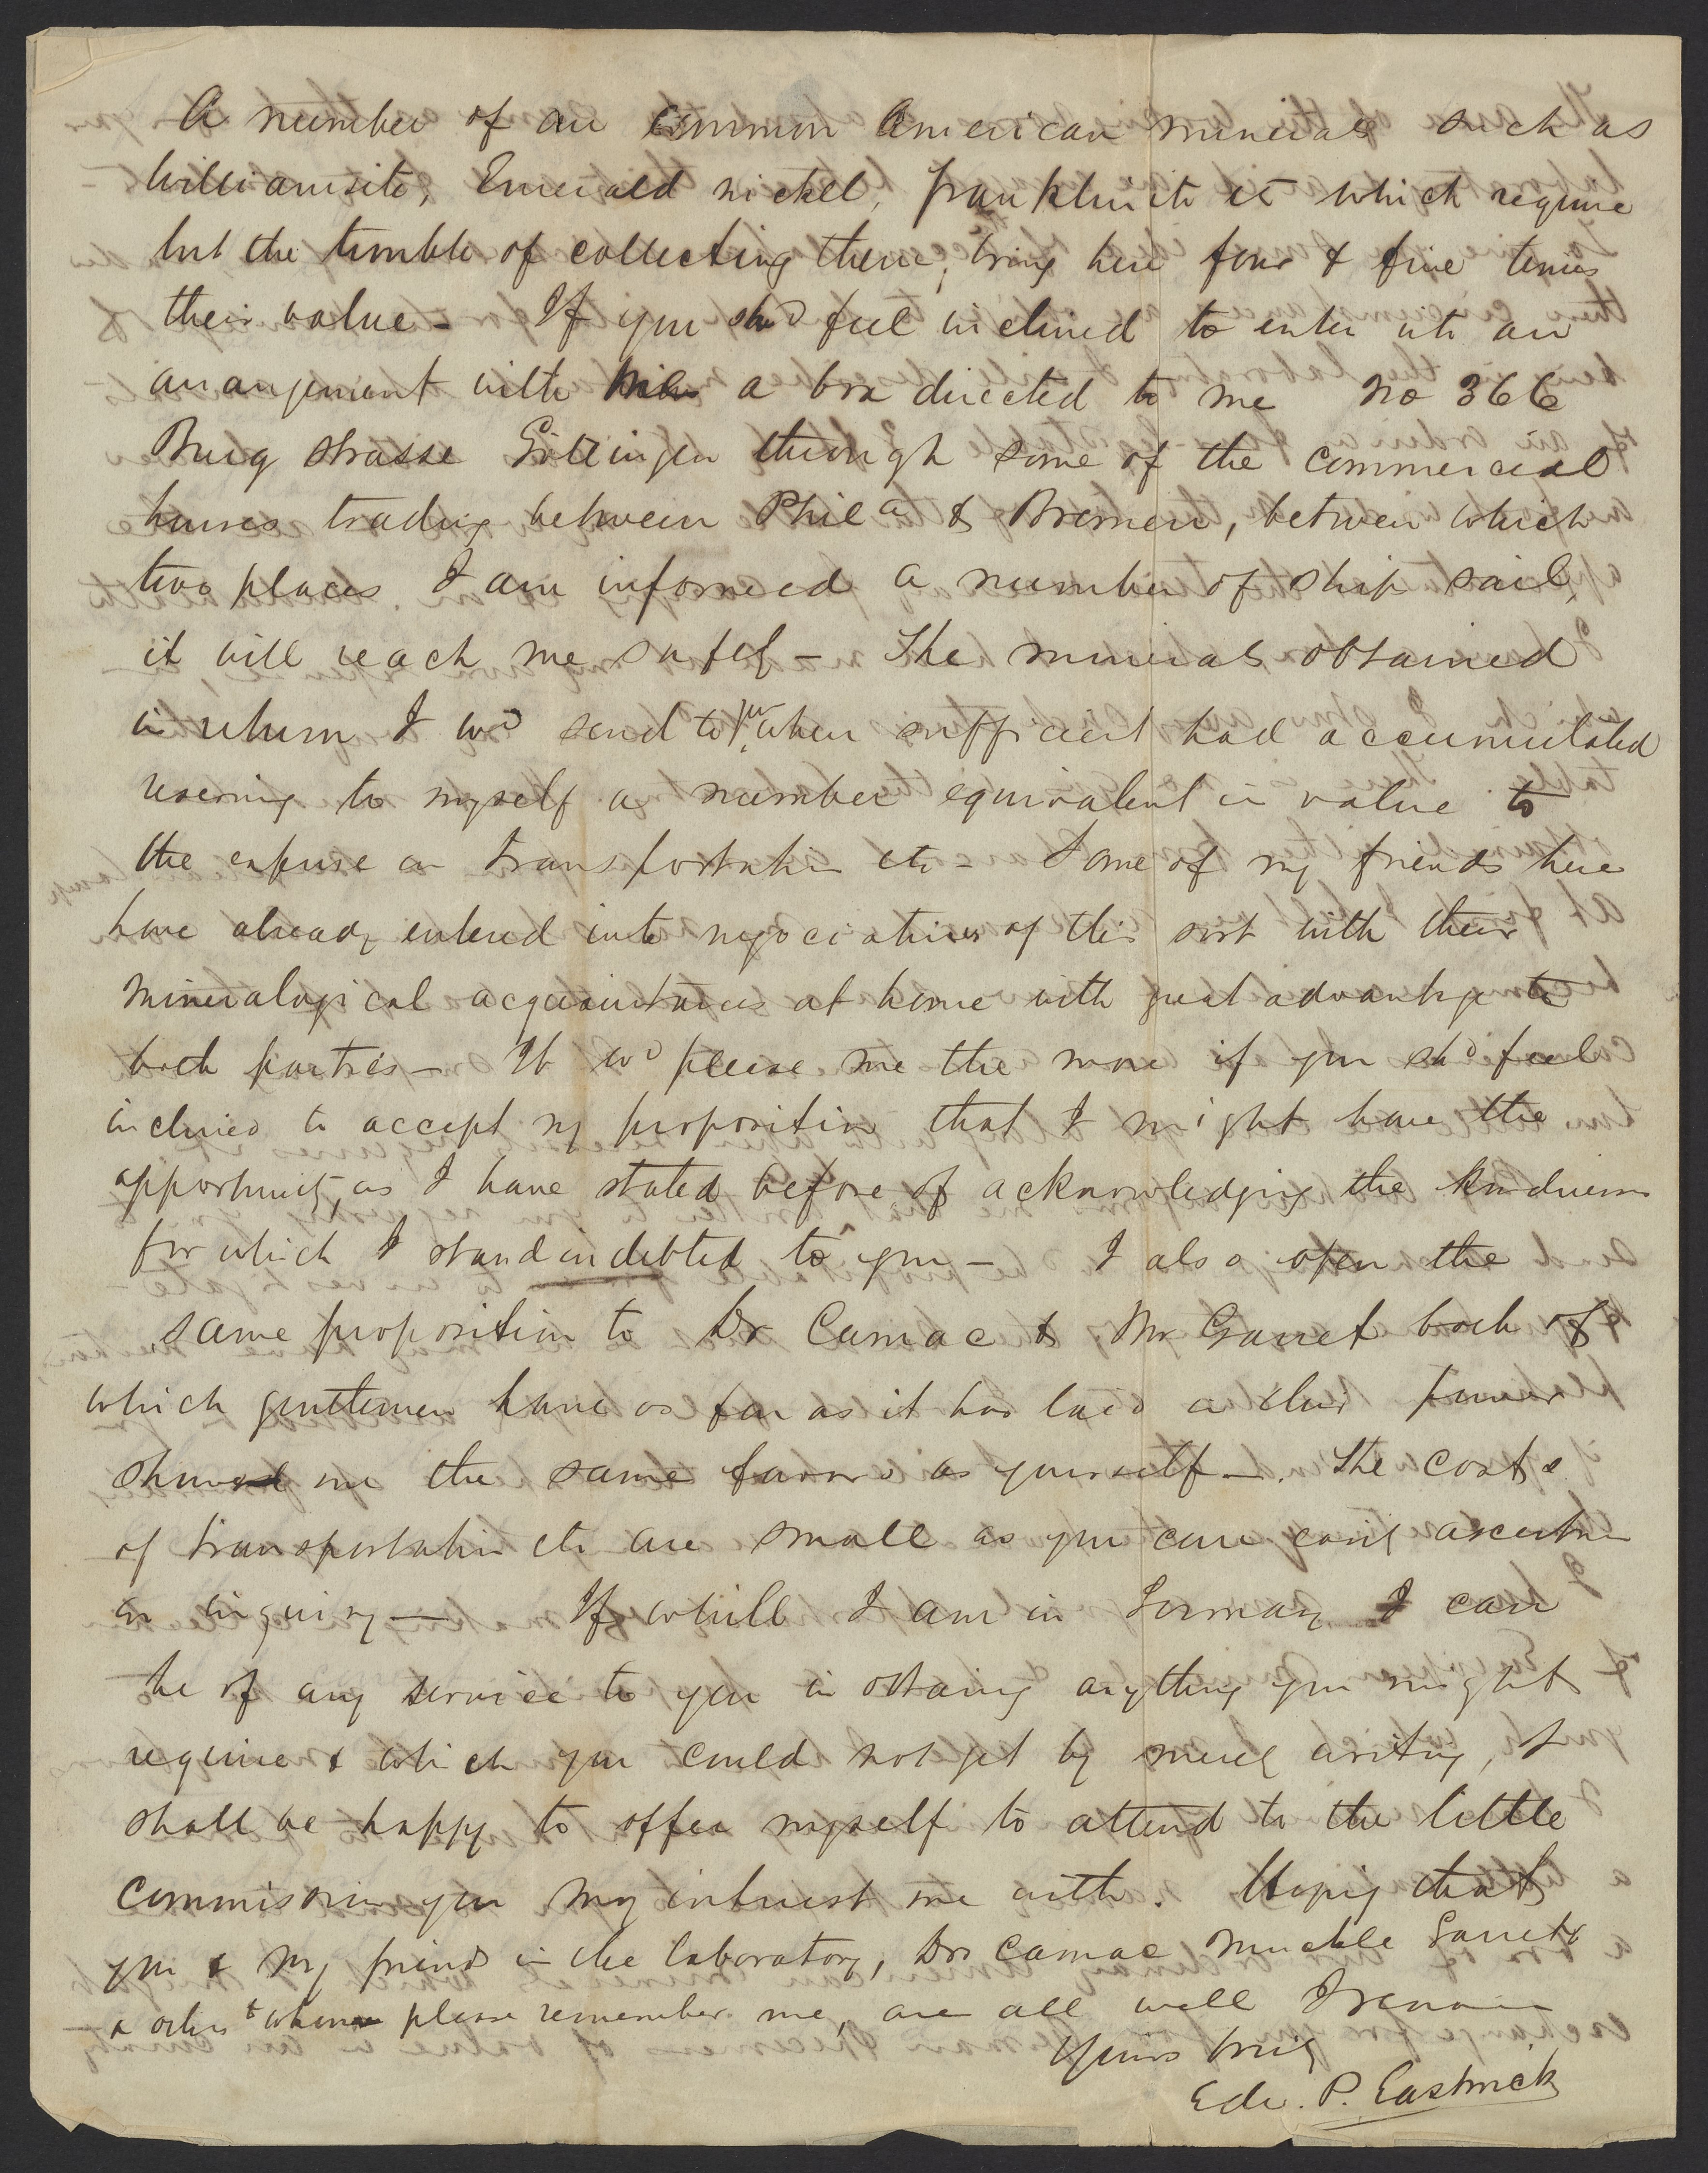 A number of our common American minerals such as
Williamsite, Emerald nickel, Franklinite etc which require
but the trouble of collecting them, bring here four & five times
their value - If you shd feel inclined to enter into an
arrangement with me a box directed to me No 366
Burg strasse Göttingen through some of the commercial
houses trading between Phila & Bremen, between which
two places I am informed a number of ships sail,
it will reach me safely - The minerals obtained
in return I wd send to you when sufficient had accumulated
reserving to myself a number equivalent in value to
the expense on transportation etc - Some of my friends here
have already entered into negociations of this sort with their
mineralogical acquaintances at home with great advantage to
both parties - It wd please me the more if you shd feel
inclined to accept my proposition that I might have the
opportunity, as I have stated before of acknowledging the kindness
for which I stand indebted to you - I also open the
same proposition to Dr Camac & Mr Garret both of
which gentlemen have as far as it has laid in their power
showed me the same favors as yourself -. The costs
of transportation etc are small as you can easily ascertain
on inquiry - If while I am in Germany I can
be of any service to you in obtaing anything you might
require & which you could not get by merely writing, I
shall be happy to offer myself to attend to the little
commission you may intrust me with. Hoping that
you & my friends in the laboratory, Drs Camac Muckle Garrett
& others to whom please remember me, are all well I remain
Yours truly
Edw. P. Eastwick